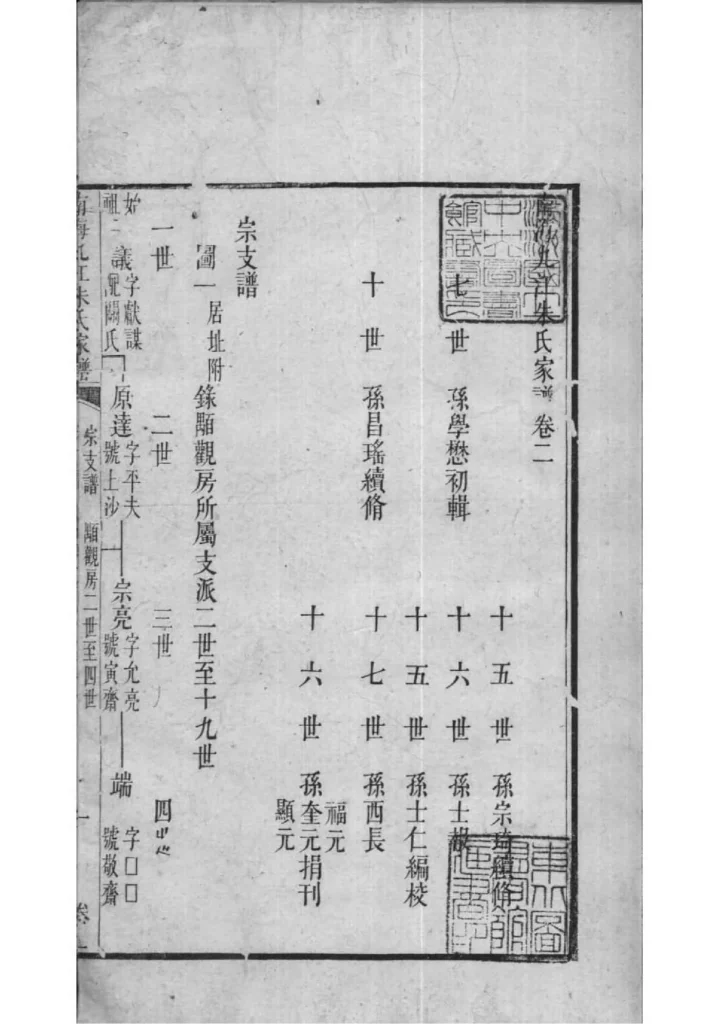 南海九江朱氏家譜 卷二
七世孫學懋初輯
十世孫昌瑤續脩
十五世孫宗琦續脩
十六世孫士
十五世孫士仁編校
十七世孫西長
福元
十六世孫奎元捐刊
顯元
宗支譜
圖一 居址附 錄顒觀房所屬支派二世至十九世
一世 二世 三世 四世
始祖 議 字獻謀 配關氏 原達 字平夫 號上沙 宗亮 字允亮 號寅齋 端 字□□ 號敬齋
南海九江朱氏家譜 宗支譜 顒觀房二世至四世 卷二